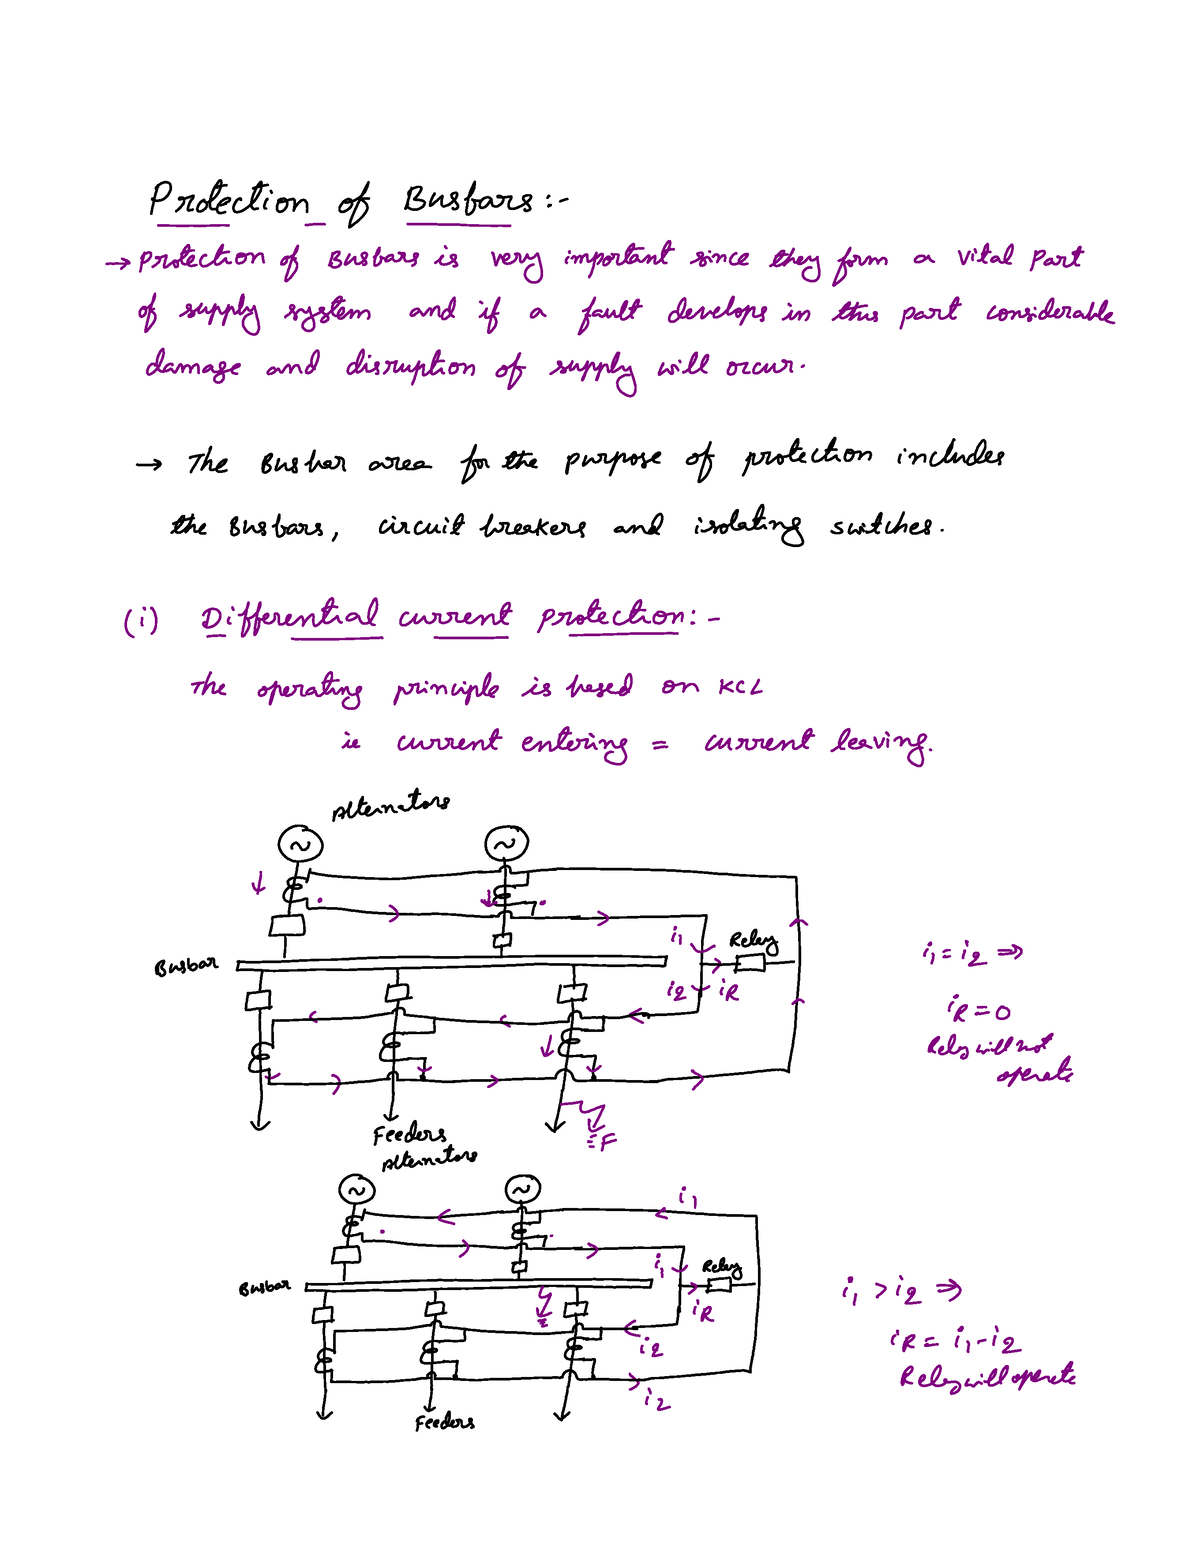 Protection of Busbars:-
→ Protection of Busbars is very important since they form a vital part
of supply system and if a fault develops in this part considerable
damage and disruption of supply will occur.
→ The Busbar area for the purpose of protection includes
the Busbars, circuit breakers and isolating switches.
(i) Differential current protection:-
The operating principle is based on KCL
ie current entering = current leaving.
Alternators
~ ~
i1 Relay
Busbar
i2 iR
i1 = i2 ⇒
iR = 0
Relay will not
operate
F
Feeders
Alternators
~ ~
i1
i1 Relay
Busbar
iR
i2
i2
Feeders
i1 > i2 ⇒
iR = i1 - i2
Relay will operate